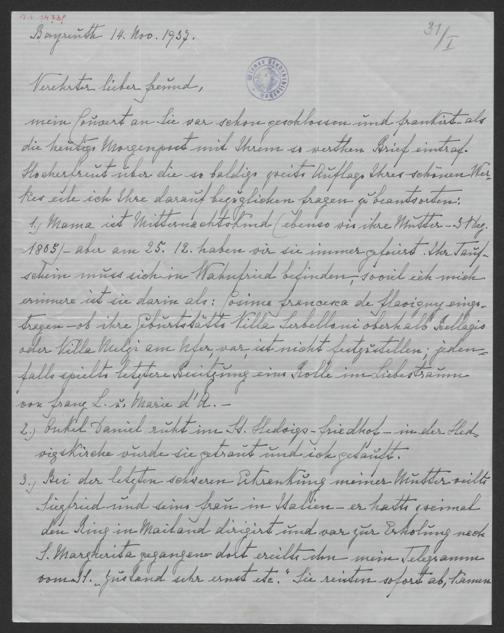 31/I
Bayreuth 14. Nov. 1937.
Verehrter lieber Freund,
mein Couvert an Sie war schon geschlossen und frankirt als
die heutige Morgenpost mit Ihrem so werthen Brief eintraf.
Hocherfreut über die so baldige zweite Auflage Ihres schönen Wer-
kes eile ich Ihre darauf bezüglichen Fragen zu beantworten:
1.) Mama ist Mitternachtskind (ebenso wie ihre Mutter
1805) - aber am 25. 12. haben wir sie immer gefeiert. Ihr Tauf-
schein muss sich in Wahnfried befinden, soviel ich mich
erinnere ist sie darin als: Cosima Francesca de Flavigny einge-
tragen - ob ihre Geburtsstätte Villa Serbelloni oberhalb Bellagio
oder Villa Melzi am Ufer war, ist nicht festzustellen; jeden-
falls spielte letztere Besitzung eine Rolle im Liebestraum
von Franz L. u. Marie d'A. -
2.) Onkel Daniel ruht im St. Hedwigs-Friedhof - in der Hed-
wigskirche wurde sie getraut und ich getauft.
3.) Bei der letzten schweren Erkrankung meiner Mutter weilte
Siegfried und seine Frau in Italien - er hatte zweimal
den Ring in Mailand dirigirt und war zur Erholung nach
S. Margherita gegangen - dort ereilte ihn - mein Telegramm
vom 31. "Zustand sehr ernst etc." Sie reisten sofort ab, kamen